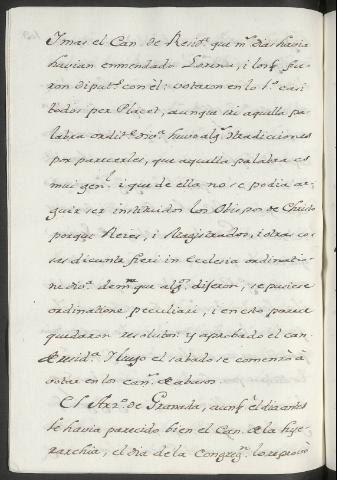 Imas el Can. de Resid.ª que m.ˢ dias havia
havian enmendado Lorena, i los q̃ fue
ron diput.ˢ con él: votaron en lo 1.º casi
todos per Placet, aunque en aquella pa-
labra ordin.ᵉ divi.ª huvo alg.ˢ contradiciones
por parecerles, que aquella palabra es
mui gen.ˡ i que de ella no se podia ar-
guir ser instituidos los Obispos de Christo
porque Reies, i Magistrados, i otras co-
sas dicuntur fieri in Ecclesia ordinatio-
ne div.ª dem.ˢ que alg.ˢ dijeron, se pusiese
ordinatione peculiari, i en esto parece
quedaron resolutos: y aprobado el can.
de resid.ª I luego el sabado se comenzò à
votar en los can.ˢ de abusos.
El Arz.º de Granada, aunq̃ el dia antes
le havia parecido bien el Can. de la Hye-
rarchia, el dia de la Congreg.ⁿ lo reprovò